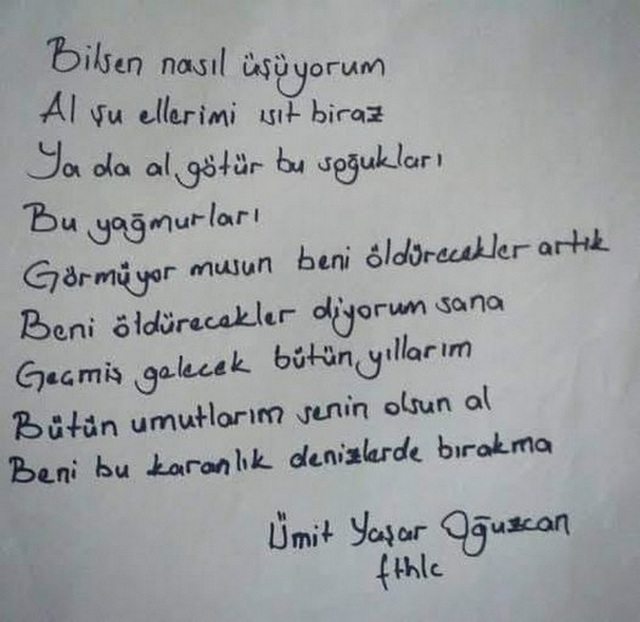 Bilsen nasıl üşüyorum
Al şu ellerimi ısıt biraz
Ya da al, götür bu soğukları
Bu yağmurları
Görmüyor musun beni öldürecekler artık
Beni öldürecekler diyorum sana
Geçmiş gelecek bütün yıllarım
Bütün umutlarım senin olsun al
Beni bu karanlık denizlerde bırakma
Ümit Yaşar Oğuzcan
fthlc